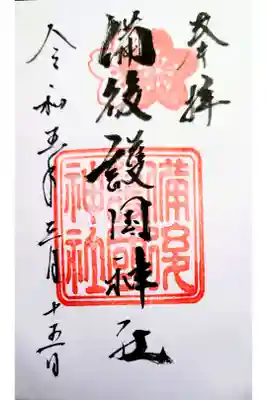 奉拝
備後護国神社
令和五年三月十五日
備後
護国
神社